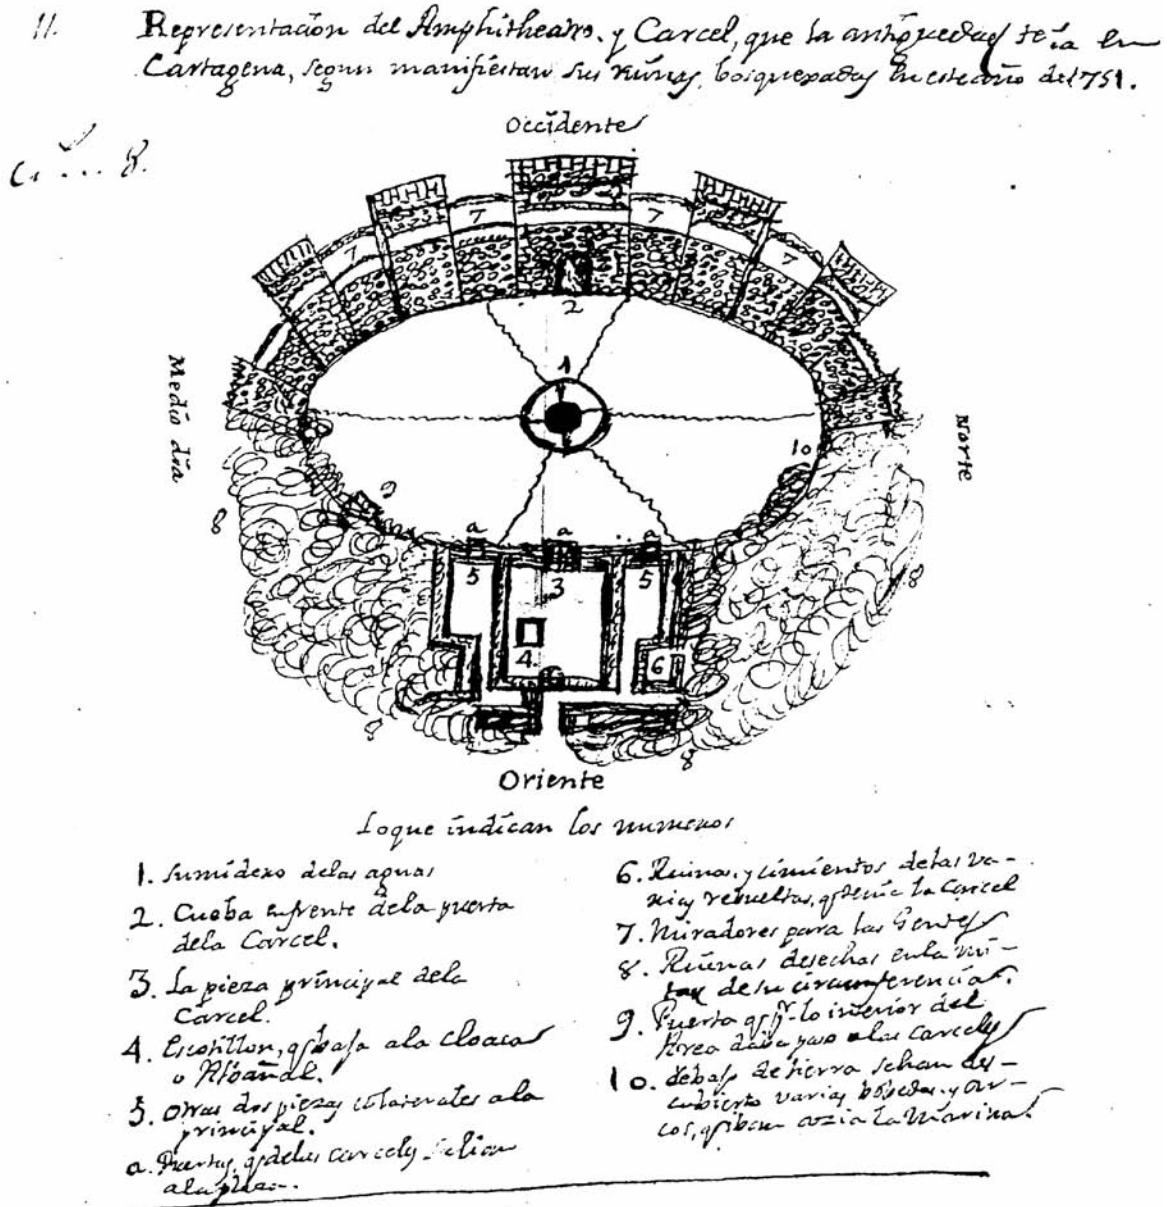 11.
Representacion del Amphitheatro, y Carcel, que la antiguedad tenia en
Cartagena, segun manifiestan sus ruinas, bosquexadas en este año de 1751.
8.
Occidente
7 7
7 7
2
1
Medio dia
Norte
10
9
8
a a a
5 3 5
8
4 6
8
8
Oriente
Loque indican los numeros
1. Sumidero delas aguas
2. Cueba enfrente dela puerta
dela Carcel.
3. La pieza principal dela
Carcel.
4. Escotillon, q baja ala cloaca
o Albañal.
5. Otras dos piezas colaterales ala
principal.
a. Puertas, q delas carceles salian
ala plaza.
6. Ruinas, y cimientos delas va-
rias revueltas, q tenia la Carcel
7. Miradores para las Gentes
8. Ruinas desechas enla mi-
tad de su circumferencia.
9. Puerta q pr. lo interior del
Area daba paso alas carceles
10. debajo de tierra sehan des-
cubierto varias bobedas, y ar-
cos, q iban azia la Marina.